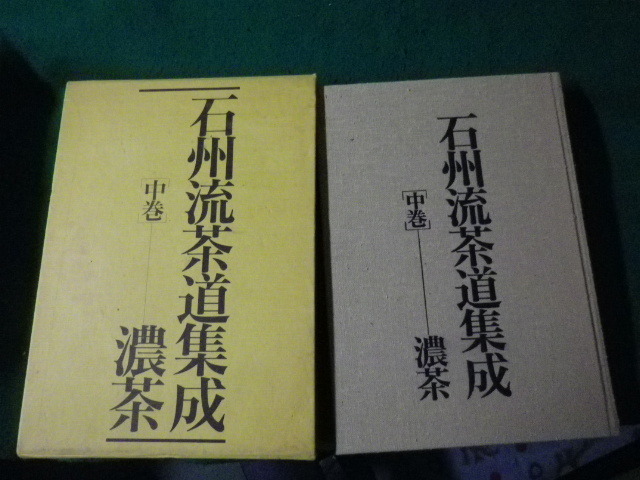 石州流茶道集成
[中巻]
濃茶
石州流茶道集成
[中巻]
濃茶